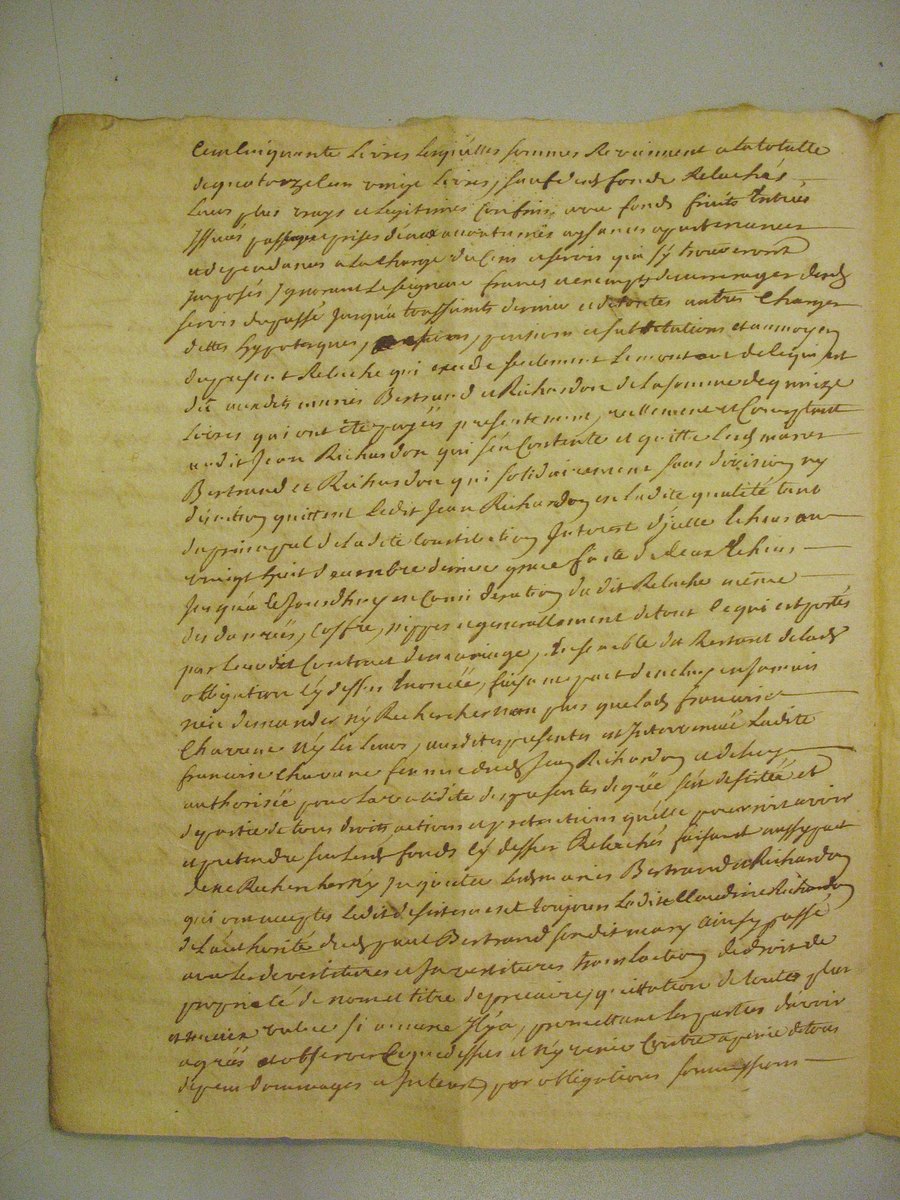 Cent Cinquante Livres Lesquelles sommes Reviennent a la totalle
de quatorze Cent vingt Livres, sauf desd fonds Relachés
Leurs plus vrays et Legitimes Confins, avec fonds fruits Entrées
Issuës passages prises deaux accoutumés aysances apartenances
et dependances a la Charge du Cens et servis qui s'y trouveront
Imposés Ignorant Le seigneur francs et exempts de arrerages desd
servis du passé Jusqu'a toussaints dernier et de toutes autres Charges
dettes hypoteques, pensions et substitutions et au moyen
du present Relache qui excede seulement Le montant de ce qui est
dû auxdits mariés Bertrand et Richardon de La somme de quinze
Livres qui ont été payés presentement, reellement et Comptant
audit Jean Richardon qui s'en Contente et quitte Lesd mariés
Bertrand et Richardon qui solidairement sans division ny
discution quittent Ledit Jean Richardon en ladite qualité tant
du principal de Ladite Constitution Interest d'jcelle Echus au
vingt huit dernier grace faite de Ceux Echus
Jusqu'a Ce Jourdhuy en Consideration dudit Relache même
des danrées, Coffre, nippes et generallement de tout Ce qui est portés
par Leurdit Contract de mariage, Ensemble du Restant de lad
obligation Cy dessus Enoncée, faisant pact de ne Leur en Jamais
rien demander n'y Rechercher non plus que lad françoise
Charrene n'y Les Leurs, auxdites presentes est Intervenuë Ladite
françoise Charrene femme dud Jean Richardon et de luy
authorisée pour La validité des presentes de gré s'est desistée et
departie de tous droits actions et pretentions qu'elle pourroit avoir
et pretendre sur Lesd fonds Cy dessus Relachés faisant aussy pact
de ne Rechercher n'y Inquieter Lesd mariés Bertrand et Richardon
qui ont acceptés Ledit desistement et toujours Ladite Claudine Richardon
de L'authorité dud Bertrand sondit mary ainsy passé
avec Les devestitures et Investitures translation de droit de
proprieté de nom et titre de precaire, quittation de toutes plus
value si aucune Il y a, promettant Les parties d'avoir
agréé et observer Ce que dessus et n'y venir Contre a peine de tous
depens dommages et Interest, par obligations soumissions